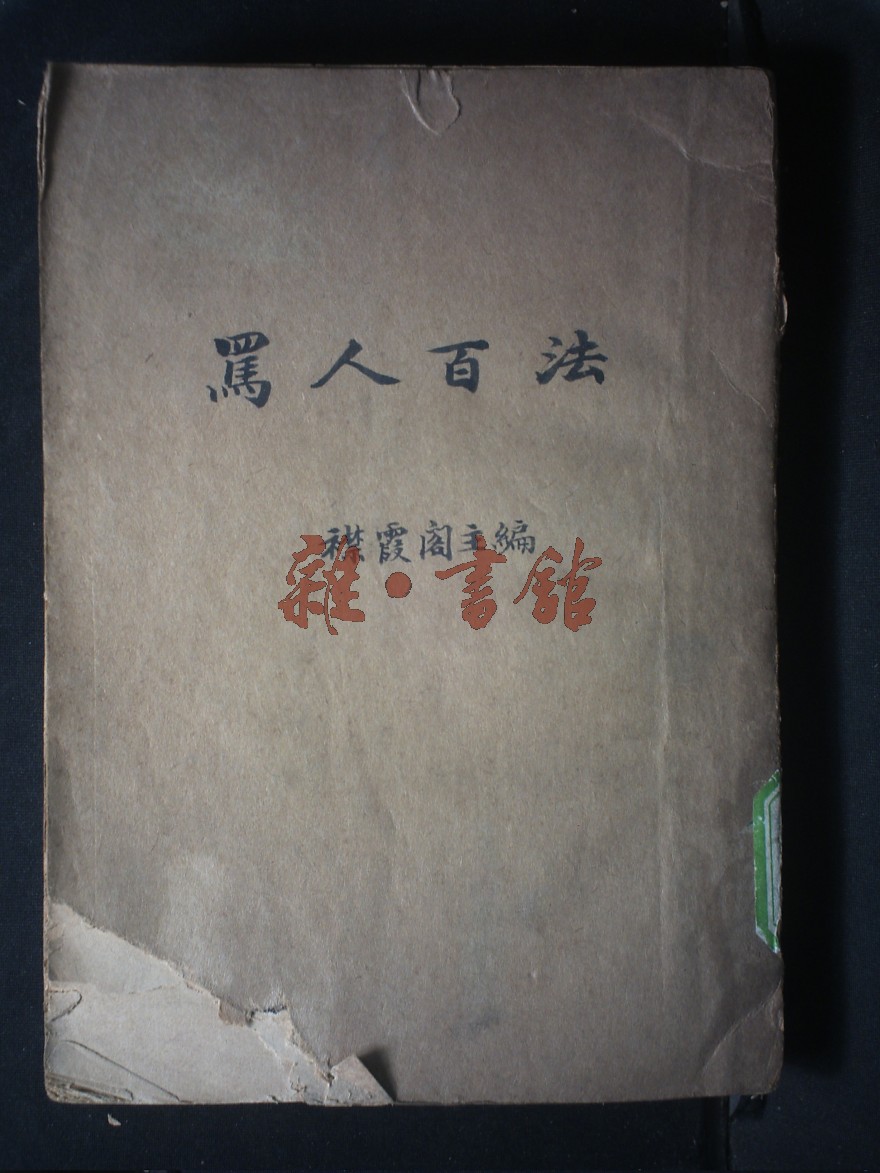 罵人百法
襟霞阁主編
雜·書館